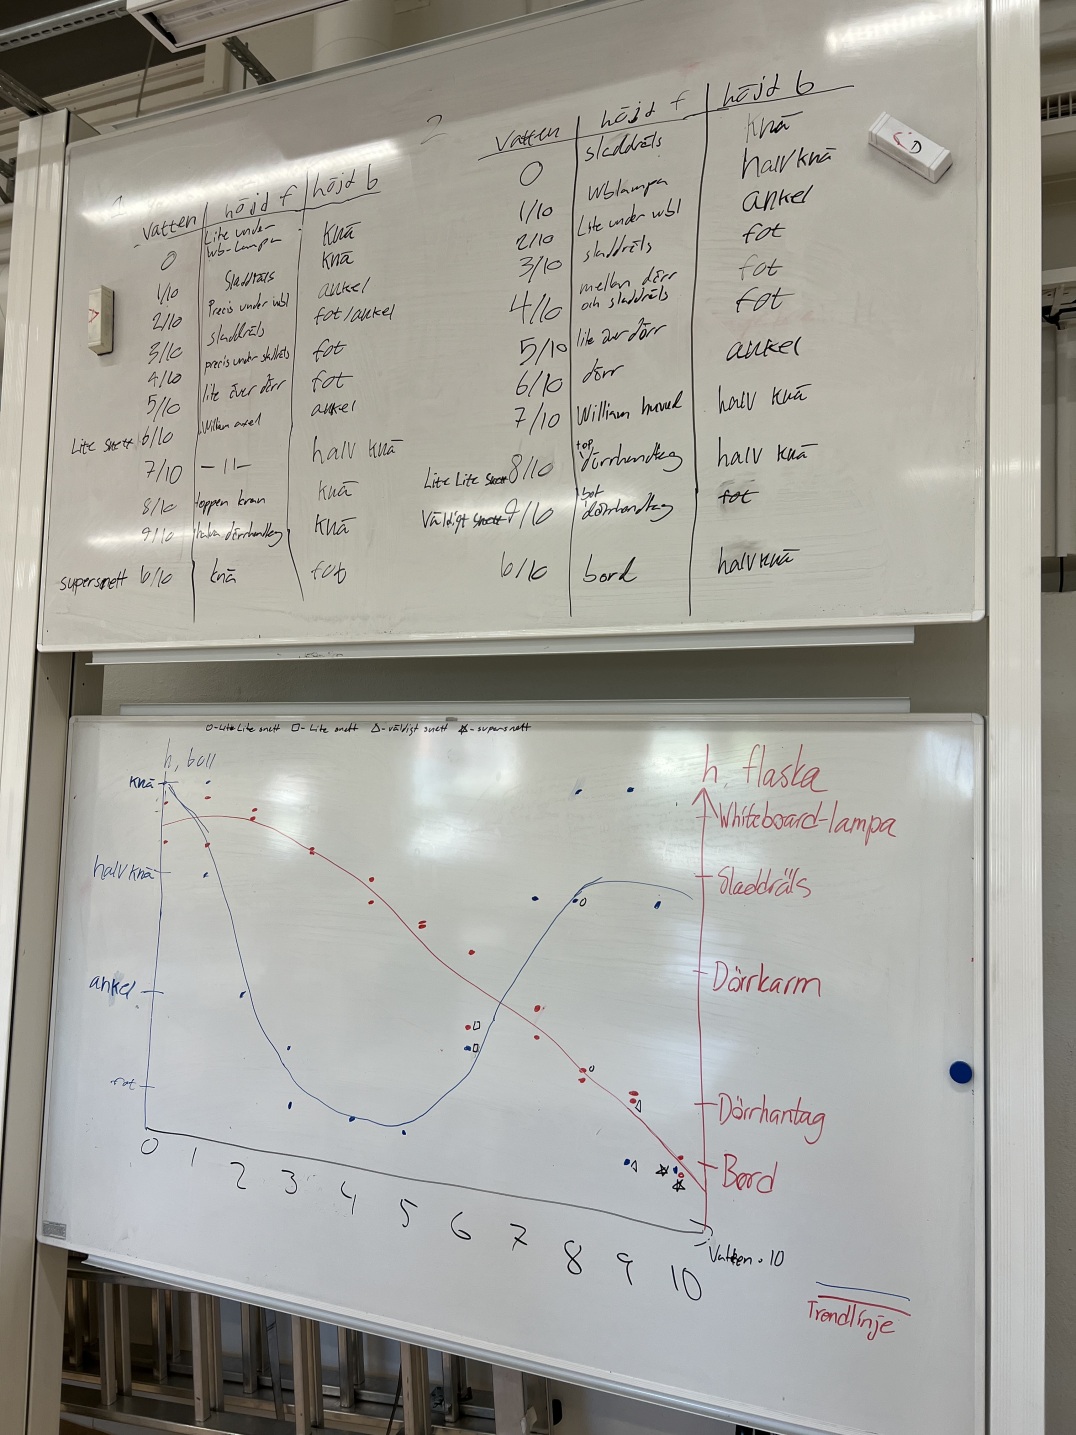 1
vatten höjd f höjd b
0 Lite under wb-lampan knä
1/10 Sladdräls knä
2/10 Precis under wbl ankel
3/10 sladdräls fot/ankel
4/10 precis under fot
5/10 lite över dörr fot
Lite snett 6/10 William axel ankel
7/10 -11- halv knä
8/10 toppen kran knä
9/10 halva dörrhandtag knä
supersnett 10/10 knä fot
2
Vatten höjd f höjd b
0 sladdräls knä
1/10 wblampa halv knä
2/10 Lite under wbl ankel
3/10 sladdräls fot
4/10 mellan dörr och sladdräls fot
5/10 lite över dörr fot
6/10 dörr ankel
7/10 William huvud halv knä
Lite Lite snett 8/10 top dörrhandtag halv knä
Väldigt snett 9/10 bot dörrhandtag fot
10/10 bord halvknä
O-Lite Lite snett □-Lite snett △-väldigt snett ☆-supersnett
h, boll
knä
halv knä
ankel
fot
h, flaska
Whiteboard-lampa
Sladdräls
Dörrkarm
Dörrhantag
Bord
0 1 2 3 4 5 6 7 8 9 10
Vatten · 10
Trendlinje